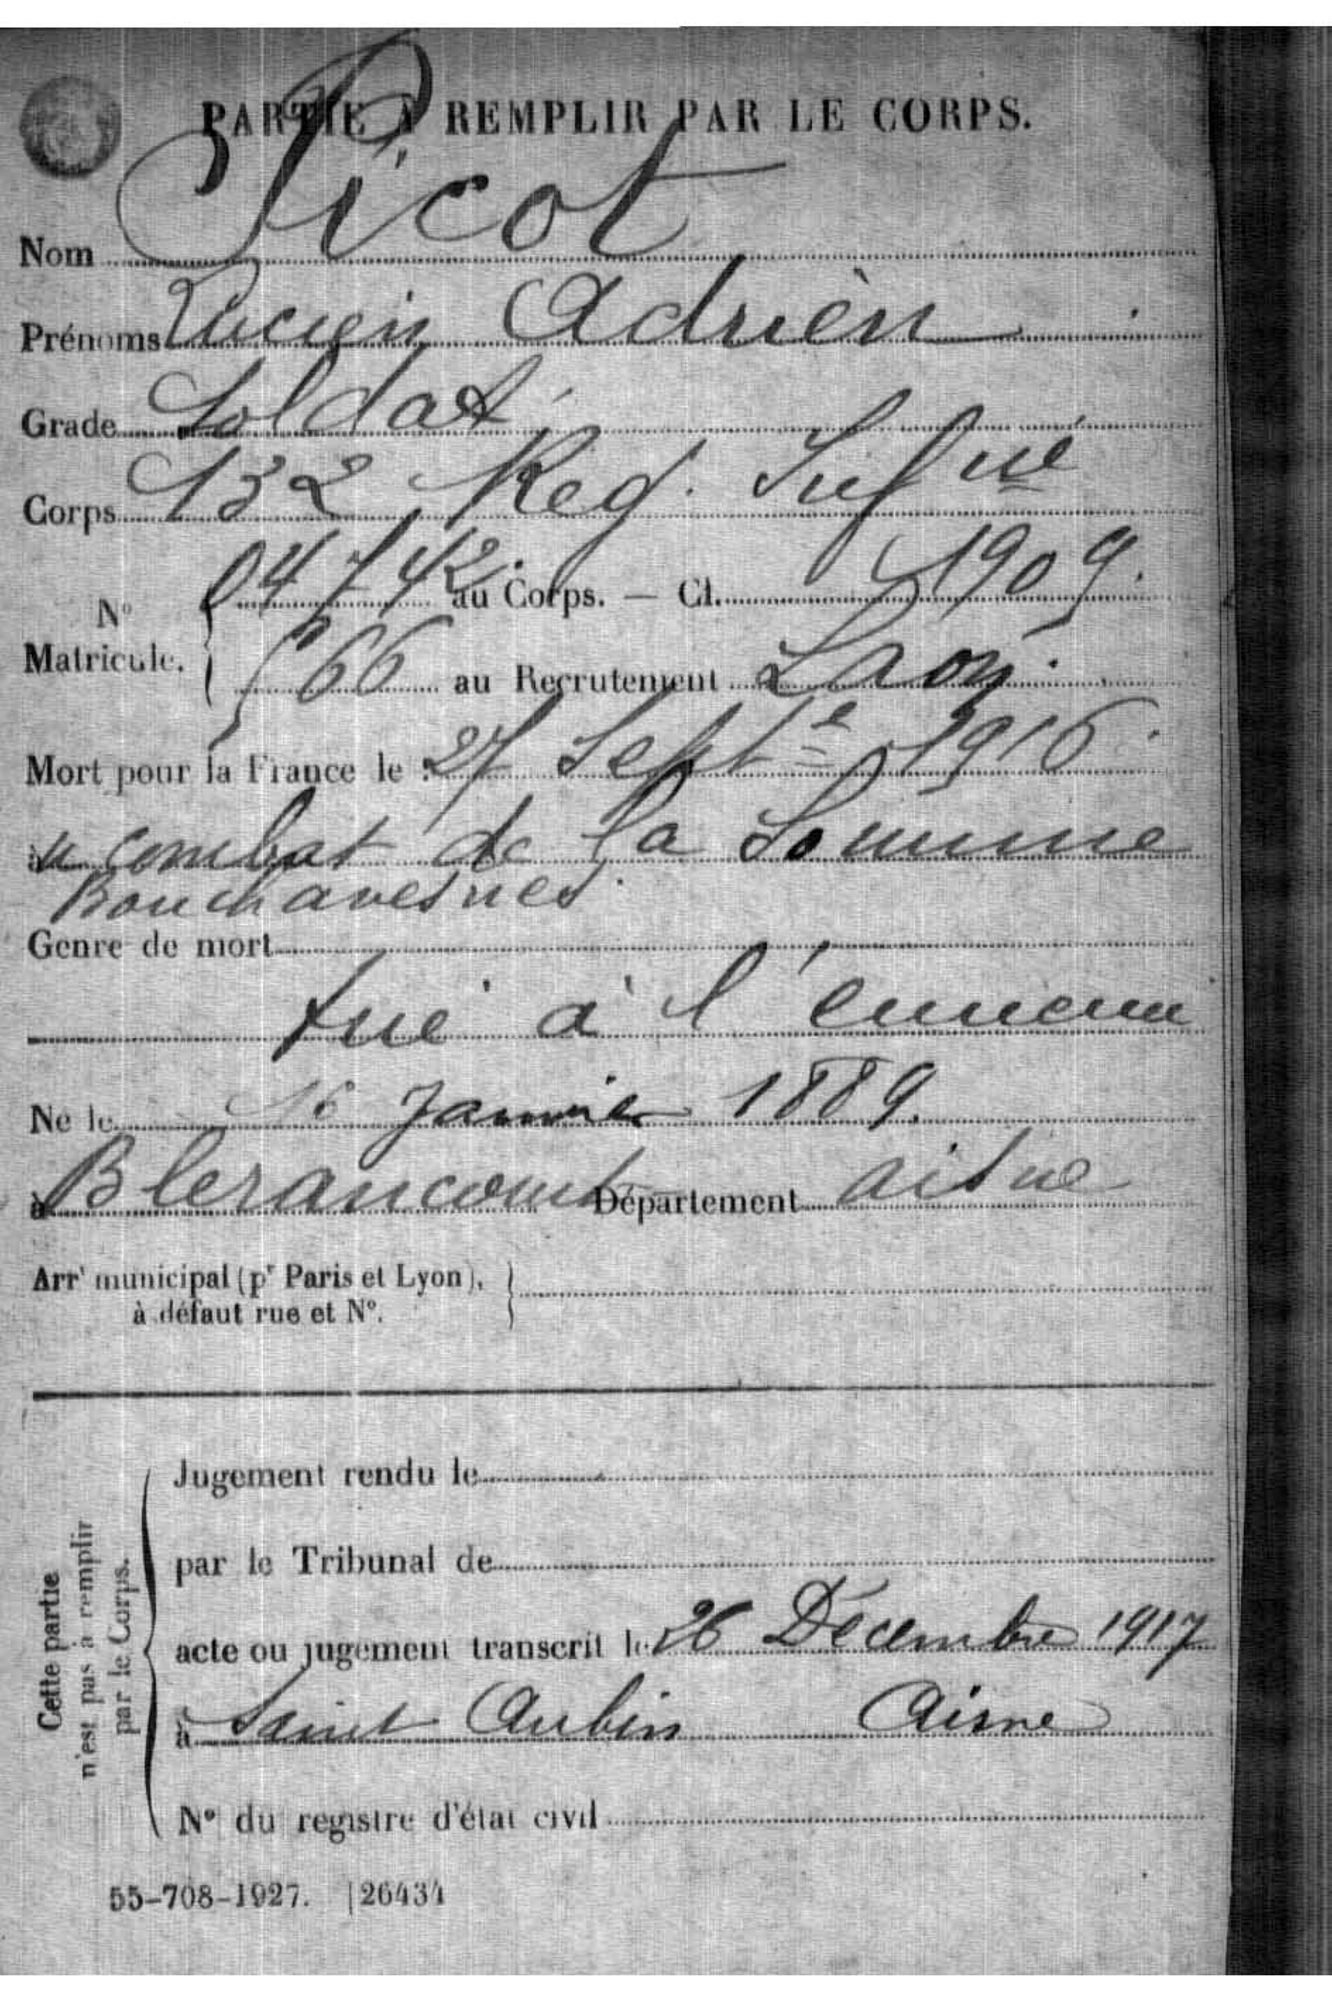 PARTIE À REMPLIR PAR LE CORPS.
Nom Picot
Prénoms Lucien Adrien
Grade Soldat
Corps 132 Reg. Inf rie
N° Matricule. 04742. au Corps. — Cl. 1909.
66 au Recrutement Laon.
Mort pour la France le 27 Septe 1916.
au combat de la Somme
Bouchavesnes.
Genre de mort
tué à l'ennemi
Né le 16 Janvier 1889.
à Blerancourt Département aisne
Arrt municipal (pr Paris et Lyon),
à défaut rue et N°.
Cette partie
n'est pas à remplir
par le Corps.
Jugement rendu le
par le Tribunal de
acte ou jugement transcrit le 26 Décembre 1917
à Saint Aubin Aisne
N° du registre d'état civil
55-708-1927. [26434